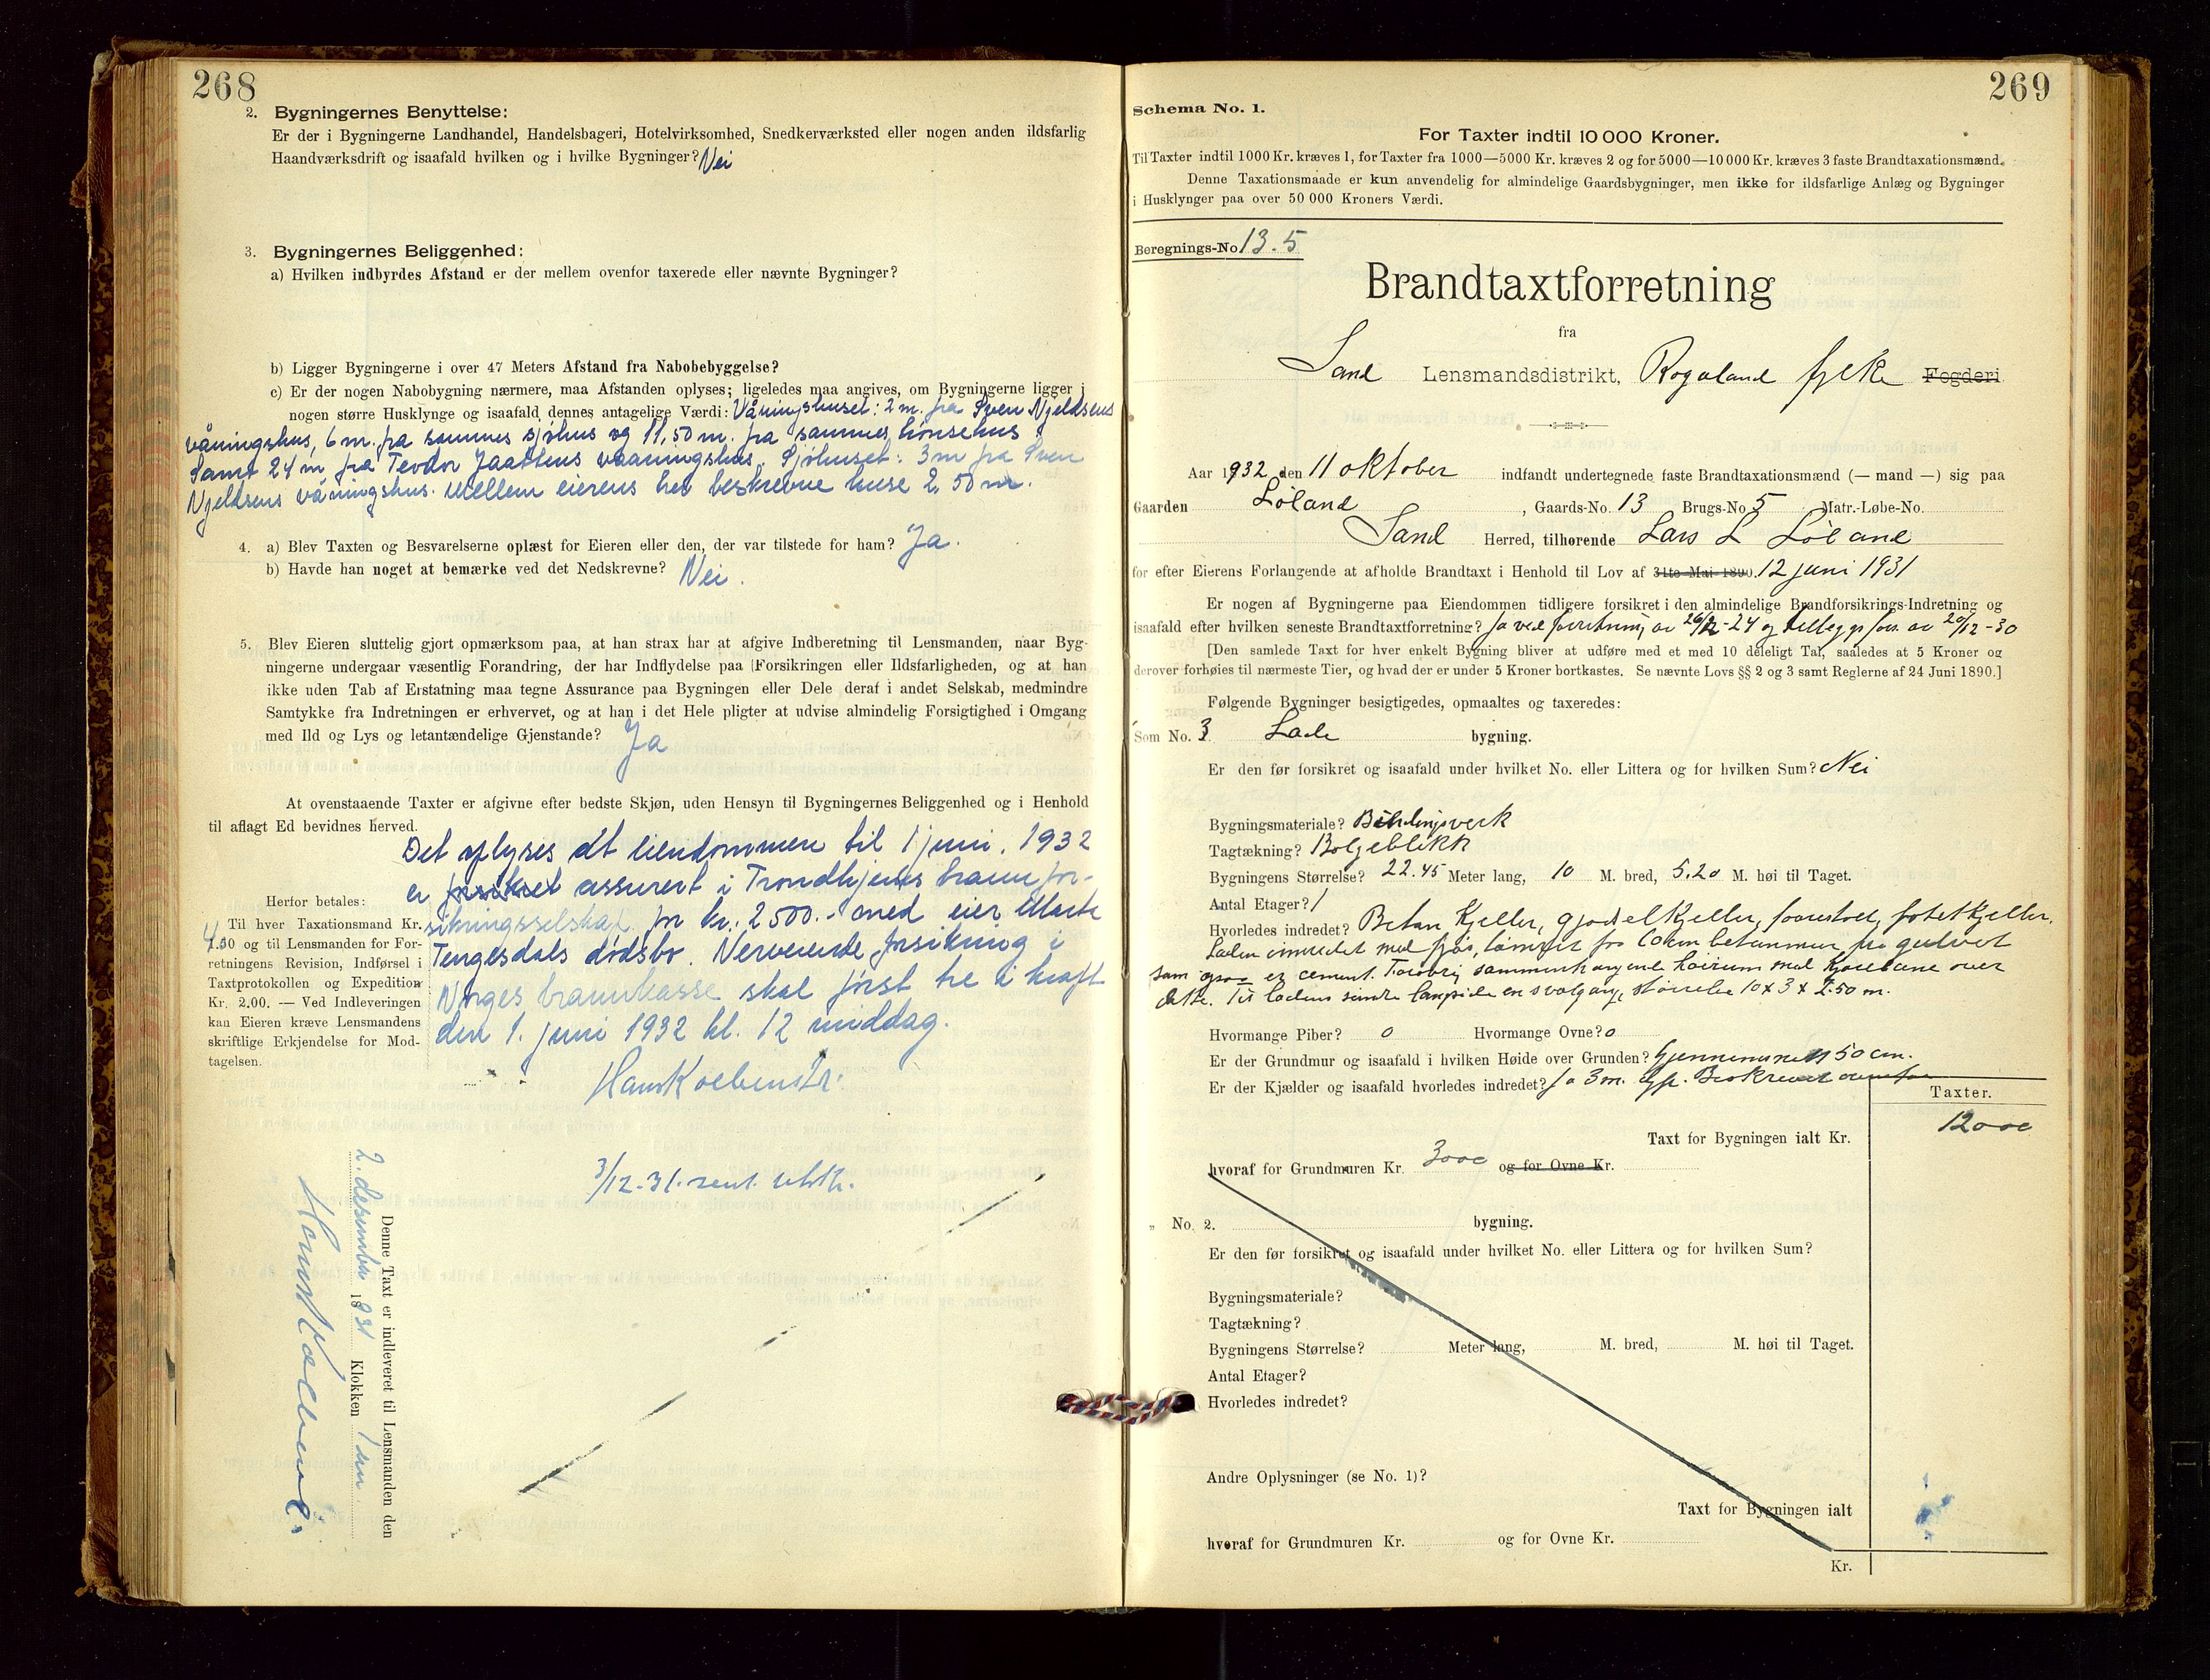 268
2. Bygningernes Benyttelse:
Er der i Bygningerne Landhandel, Handelsbageri, Hotelvirksomhed, Snedkerværksted eller nogen anden ildsfarlig
Haandværksdrift og isaafald hvilken og i hvilke Bygninger? Nei
3. Bygningernes Beliggenhed:
a) Hvilken indbyrdes Afstand er der mellem ovenfor taxerede eller nævnte Bygninger?
b) Ligger Bygningerne i over 47 Meters Afstand fra Nabobebyggelse?
c) Er der nogen Nabobygning nærmere, maa Afstanden oplyses; ligeledes maa angives, om Bygningerne ligger i
nogen større Husklynge og isaafald dennes antagelige Værdi: Våningshuset: 2 m. fra Sven Njeldsens
våningshus, 6 m. fra sammes sjöhus og 11,50 m. fra sammes hönsehus
samt 24 m fra Teodor Jaattens vaaningshus. Sjöhuset: 3 m fra Sven
Njeldsens våningshus. Mellem eierens her beskrevne huse 2,50 m.
4. a) Blev Taxten og Besvarelserne oplæst for Eieren eller den, der var tilstede for ham? Ja.
b) Havde han noget at bemærke ved det Nedskrevne? Nei.
5. Blev Eieren sluttelig gjort opmærksom paa, at han strax har at afgive Indberetning til Lensmanden, naar Byg-
ningerne undergaar væsentlig Forandring, der har Indflydelse paa Forsikringen eller Ildsfarligheden, og at han
ikke uden Tab af Erstatning maa tegne Assurance paa Bygningen eller Dele deraf i andet Selskab, medmindre
Samtykke fra Indretningen er erhvervet, og at han i det Hele pligter at udvise almindelig Forsigtighed i Omgang
med Ild og Lys og letantændelige Gjenstande? Ja
At ovenstaaende Taxter er afgivne efter bedste Skjøn, uden Hensyn til Bygningernes Beliggenhed og i Henhold
til aflagt Ed bevidnes herved.
Det oplyses at eiendommen til 1 juni. 1932
er forsikret assurert i Trondhjems brannfor-
sikringsselskap for kr. 2500.- med eier Marta
Tengesdals dödsbo. Nerverende forsikring i
Norges brannkasse skal först tre i kraft
den 1. juni 1932 kl. 12 middag.
Herfor betales:
Til hver Taxationsmand Kr.
4.00 og til Lensmanden for For-
retningens Revision, Indførsel i
Taxtprotokollen og Expedition
Kr. 2.00. — Ved Indleveringen
kan Eieren kræve Lensmandens
skriftlige Erkjendelse for Mod-
tagelsen.
3/12-31. sent
Denne Taxt er indleveret til Lensmanden den
2. desember 1931 Klokken 1 em
269
Schema No. 1.
For Taxter indtil 10 000 Kroner.
Til Taxter indtil 1000 Kr. kræves 1, for Taxter fra 1000—5000 Kr. kræves 2 og for 5000—10 000 Kr. kræves 3 faste Brandtaxationsmænd.
Denne Taxationsmaade er kun anvendelig for almindelige Gaardsbygninger, men ikke for ildsfarlige Anlæg og Bygninger
i Husklynger paa over 50 000 Kroners Værdi.
Beregnings-No 13.5
Brandtaxtforretning
fra
Sand Lensmandsdistrikt, Rogaland fylke Fogderi
Aar 1932 den 11 oktober indfandt undertegnede faste Brandtaxationsmænd (— mand —) sig paa
Gaarden Löland, Gaards-No. 13 Brugs-No 5 Matr.-Løbe-No.
Sand Herred, tilhørende Lars L Löland
for efter Eierens Forlangende at afholde Brandtaxt i Henhold til Lov af 31te Mai 1890. 12 juni 1931
Er nogen af Bygningerne paa Eiendommen tidligere forsikret i den almindelige Brandforsikrings-Indretning og
isaafald efter hvilken seneste Brandtaxtforretning? Ja ved forretning av 26/12-24 og tillegg for. av 20/12-30
[Den samlede Taxt for hver enkelt Bygning bliver at udføre med et med 10 deleligt Tal, saaledes at 5 Kroner og
derover forhøies til nærmeste Tier, og hvad der er under 5 Kroner bortkastes. Se nævnte Lovs §§ 2 og 3 samt Reglerne af 24 Juni 1890.]
Følgende Bygninger besigtigedes, opmaaltes og taxeredes:
Som No. 3 Lade bygning.
Er den før forsikret og isaafald under hvilket No. eller Littera og for hvilken Sum? Nei
Bygningsmateriale? Bindingsverk
Tagtækning? Bølgeblikk
Bygningens Størrelse? 22.45 Meter lang, 10 M. bred, 5.20 M. høi til Taget.
Antal Etager? 1
Hvorledes indredet? Betan Kjeller, gjødselkjeller, potetkjeller.
Laden innredet med fjös,
som er cement. sammenhængende höirum med Kjørebane over
dette. Til ladens söndre langside en svalgang, störrelse 10 x 3 x 2.50 m.
Hvormange Piber? 0 Hvormange Ovne? 0
Er der Grundmur og isaafald i hvilken Høide over Grunden? Gjennemsnitt 50 cm.
Er der Kjælder og isaafald hvorledes indredet? Ja 3 m. dyp. Beskrevet ovenfor
Taxter.
Taxt for Bygningen ialt Kr. 12000
hvoraf for Grundmuren Kr. 3000 og for Ovne Kr.
„ No. 2. bygning.
Er den før forsikret og isaafald under hvilket No. eller Littera og for hvilken Sum?
Bygningsmateriale?
Tagtækning?
Bygningens Størrelse? Meter lang, M. bred, M. høi til Taget.
Antal Etager?
Hvorledes indredet?
Andre Oplysninger (se No. 1)?
Taxt for Bygningen ialt
hvoraf for Grundmuren Kr. og for Ovne Kr.
Kr.